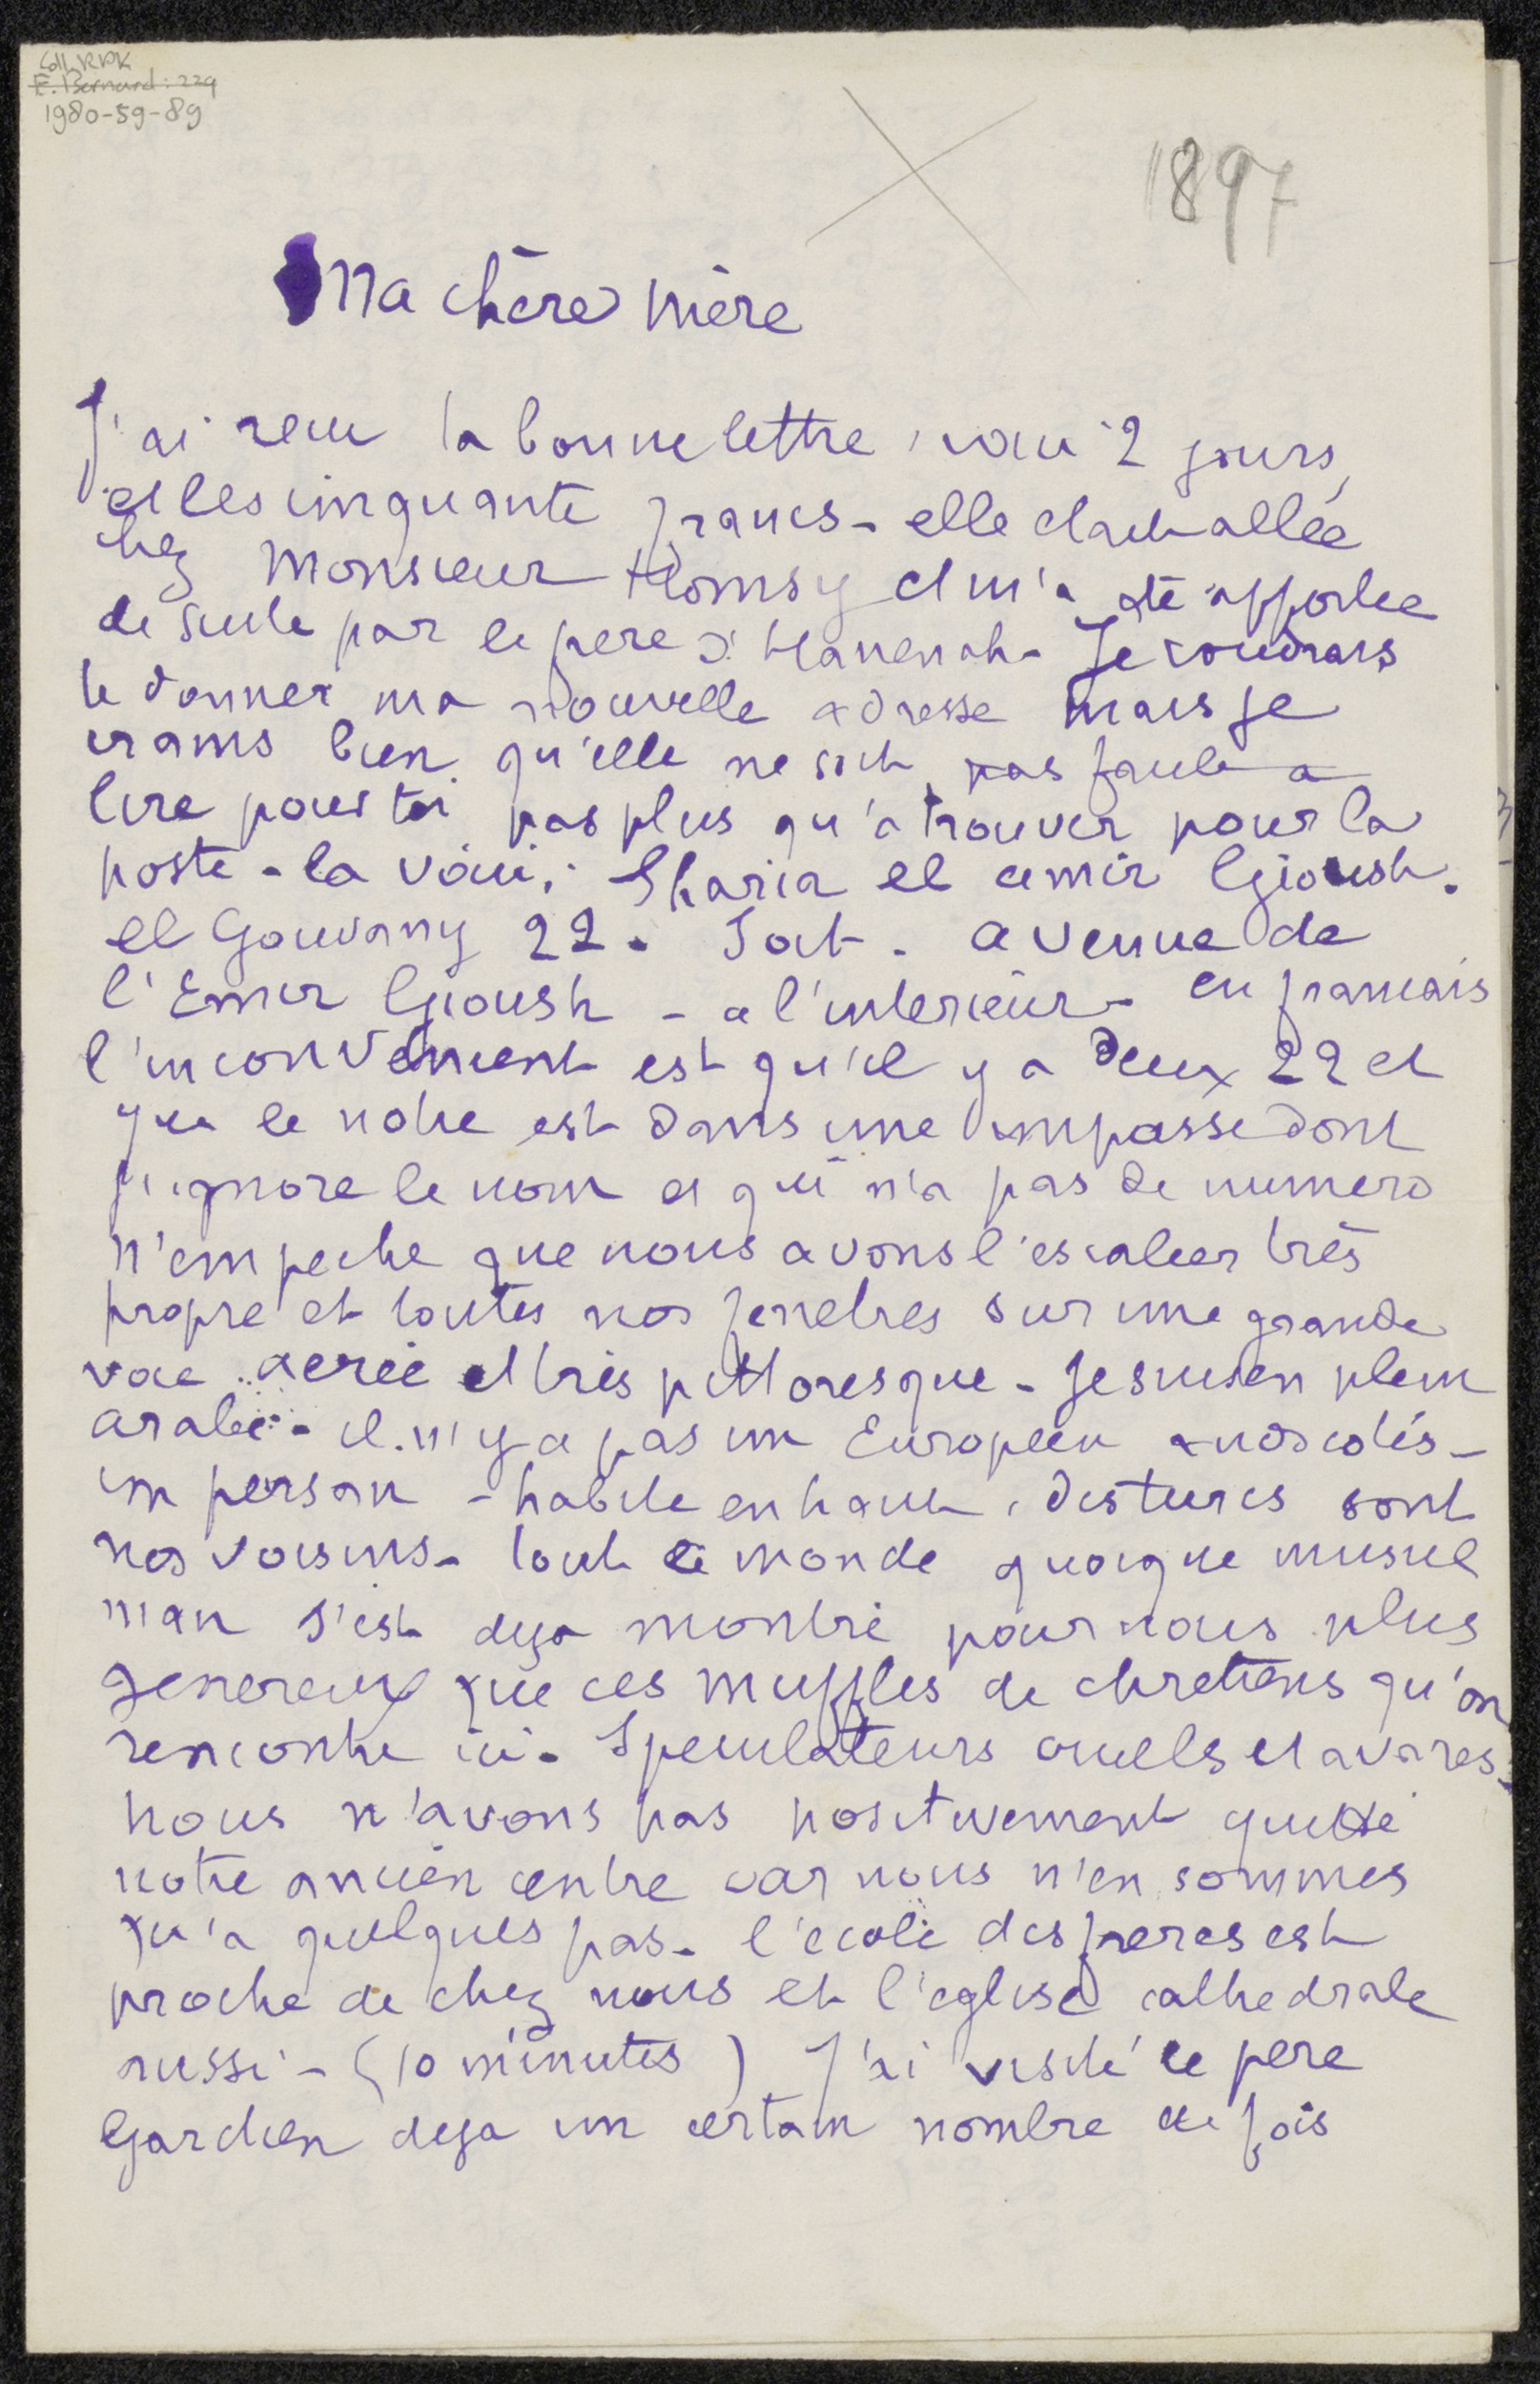 Coll. RPK
E. Bernard: 229
1980-59-89
1897
Ma chère mère
J'ai recu ta bonne lettre, voici 2 jours,
et les cinquante francs - elle etait allée
chez Monsieur Homsy et m'a été apportee
de suite par le pere J. Hanenah - Je voudrais
te donner ma nouvelle adresse mais je
crains bien qu'elle ne soit pas facile a
lire pour toi pas plus qu'a trouver pour la
poste - la voici: Sharia el emir Gioush.
el Gouvany 22. Soit. avenue de
l'Emir Gioush - a l'interieur - en francais
l'inconvenient est qu'il y a deux 22 et
que le notre est dans une impasse dont
j'ignore le nom et qui n'a pas de numero
N'empeche que nous avons l'escalier très
propre et toutes nos fenetres sur une grande
voie aerée et très pittoresque - Je suis en plein
arabe - il n'y a pas un Européen a nos cotés -
un persan - habite en haut, des turcs sont
nos voisins - tout le monde quoique musul
man s'est deja montré pour nous plus
genereux que ces muffles de chretiens qu'on
rencontre ici - Speculateurs cruels et avares -
Nous n'avons pas positivement quitté
notre ancien centre car nous n'en sommes
qu'a quelques pas - l'ecole des freres est
proche de chez nous et l'eglise cathedrale
aussi - (10 minutes) J'ai visité le pere
Gardien deja un certain nombre de fois